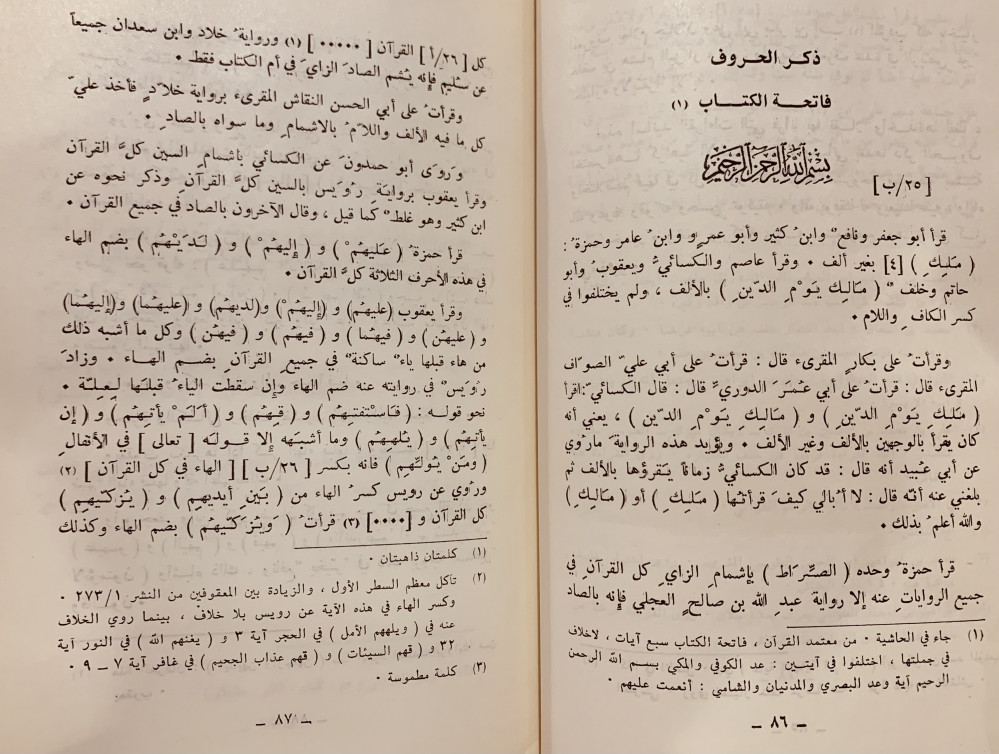 ذكر الحروف
فاتحة الكتاب (١)
بسم الله الرحمن الرحيم
[٢٥/ب]
قرأ أبو جعفر ونافع وابن كثير وأبو عمرو وابن عامر وحمزة :
( مَلِكِ ) [٤] بغير ألف ٠ وقرأ عاصم والكسائي ويعقوب وأبو
حاتم وخلف ( مَالِكِ يَوْمِ الدّينِ ) بالألف ، ولم يختلفوا في
كسر الكافِ واللام ٠
وقرأتُ على بكارٍ المقرىء قال : قرأتُ على أبي عليّ الصوّاف
المقرىء قال : قرأتُ على أبي عمَرَ الدوريِّ قال : قال الكسائيّ : اقرأ
( مَلِكِ يَوْمِ الدّينِ ) و ( مَالِكِ يَوْمِ الدّينِ ) ، يعني أنه
كان يقرأ بالوجهين بالألف وغير الألف ٠ ويؤيد هذه الروايةَ ما رُوي
عن أبي عُبيد أنه قال : قد كان الكسائيُّ زماناً يَقرؤها بالألف ثم
بلغني عنه أنّه قال : لا أُبالي كيفَ قرأتُها ( مَلِكِ ) أو ( مَالِكِ )
والله أعلمُ بذلك ٠
قرأ حمزةُ وحده ( الصِّرَاط ) بإشمامِ الزايِ كل القرآنِ في
جميع الرواياتِ عنه إلا رواية عبدِ الله بن صالحٍ العجلي فإنه بالصاد
(١) جاء في الحاشية ٠ من معتمد القرآن ، فاتحة الكتاب سبع آيات ، لاخلاف
في جملتها ، اختلفوا في آيتين : عد الكوفي والمكي بسم الله الرحمن
الرحيم آية وعد البصري والمدنيان والشامي : أنعمت عليهم ٠
ــ ٨٦ ــ
كل [ ٢٦/أ ] القرآن [ ٠٠٠٠٠ ] (١) وروايةُ خلاد وابن سعدان جميعاً
عن سُليم فإنه يُشم الصادَ الزايَ في أم الكتاب فقط ٠
وقرأتُ على أبي الحسن النقاش المقرىء برواية خلاّدٍ فأخذ عليّ
كل ما فيه الألف واللامُ بالاشمامِ وما سواه بالصادِ ٠
ورَوى أبو حمدونَ عن الكسائي باشمامِ السين كلَّ القرآن
وقرأ يعقوب بروايةِ رُوَيس بالسين كلَّ القرآنِ وذكر نحوه عن
ابن كثير وهو غلط كما قيل ، وقال الآخرون بالصاد في جميع القرآن ٠
قرأ حمزةُ ( عَلَيهُمْ ) و ( إِليهُمْ ) و ( لَدَيْهُمْ ) بضم الهاء
في هذه الأحرف الثلاثة كلَّ القرآن ٠
وقرأ يعقوب (عليهُم) و (إليهُمْ) و(لديهُم) و (عليهُما) و(إليهُما)
و ( عليهُن ) و ( فيهُما ) و ( فيهُم ) و ( فيهُن ) وكل ما أشبه ذلك
من هاء قبلها ياءٌ ساكنةٌ في جميعِ القرآنِ بضم الهاء ٠ وزادَ
رُوَيسٌ في روايته عنه ضم الهاء وإن سقطت الياءُ قبلَها لِعِلّة ٠
نحو قوله : ( فَاسْتفتِهُم ) و ( قِهُم ) و ( أَلَمْ يأتِهُم ) و ( إن
يأتِهُم ) و ( يُلهِهُم ) وما أشبَهه إلا قوله [ تعالى ] في الأنفال
( ومَنْ يُولّهِم ) فانه بكسر [ ٢٦/ب ] [ الهاء في كل القرآن ] (٢)
ورُوي عن رويس كسرُ الهاء من ( بَين أيديهِم ) و ( يُزكّيهِم )
كل القرآن و [٠٠٠٠] (٣) قرأتُ ( وَيُزَكّيهُم ) بضم الهاء وكذلك
(١) كلمتان ذاهبتان ٠
(٢) تآكل معظم السطر الأول ، والزيادة بين المعقوفين من النشر ٢٧٣/١ ٠
وكسر الهاء في هذه الآية عن رويس بلا خلاف ، بينما روي الخلاف
عنه في ( ويلههم الأمل ) في الحجر آية ٣ و ( يغنهم الله ) في النور آية
٣٢ و ( قهم السيئات ) و ( قهم عذاب الجحيم ) في غافر آية ٧ ــ ٩ ٠
(٣) كلمة مطموسة ٠
ــ ٨٧ ــ